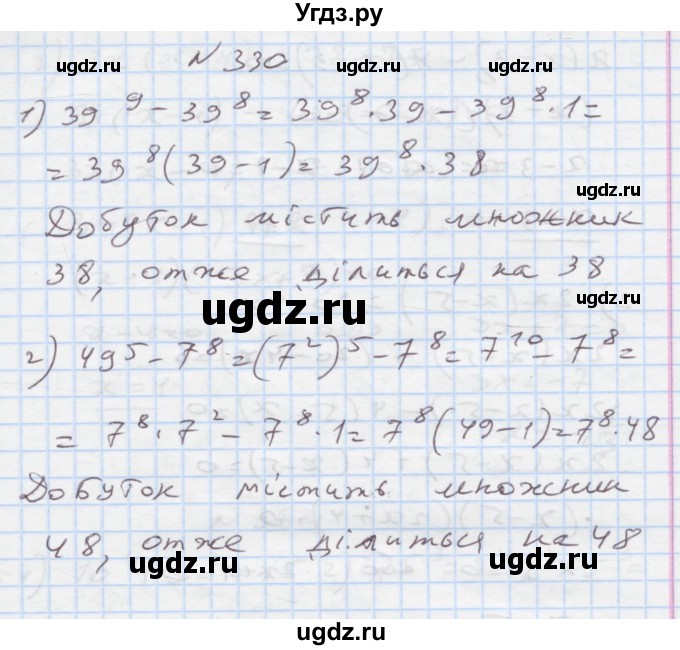 Угдз.ру
N 330
ugdz.ru ugdz.ru
1) 39⁹ - 39⁸ = 39⁸·39 - 39⁸·1 =
= 39⁸(39-1) = 39⁸·38
ugdz.ru ugdz.ru
Добуток містить множник
38, отже ділиться на 38
ugdz.ru ugdz.ru
ugdz.ru
2) 49⁵ - 7⁸ = (7²)⁵ - 7⁸ = 7¹⁰ - 7⁸ =
ugdz.ru ugdz.ru
= 7⁸·7² - 7⁸·1 = 7⁸(49-1) = 7⁸·48
ugdz.ru ugdz.ru
Добуток містить множник
48, отже ділиться на 48
ugdz.ru ugdz.ru
ugdz.ru